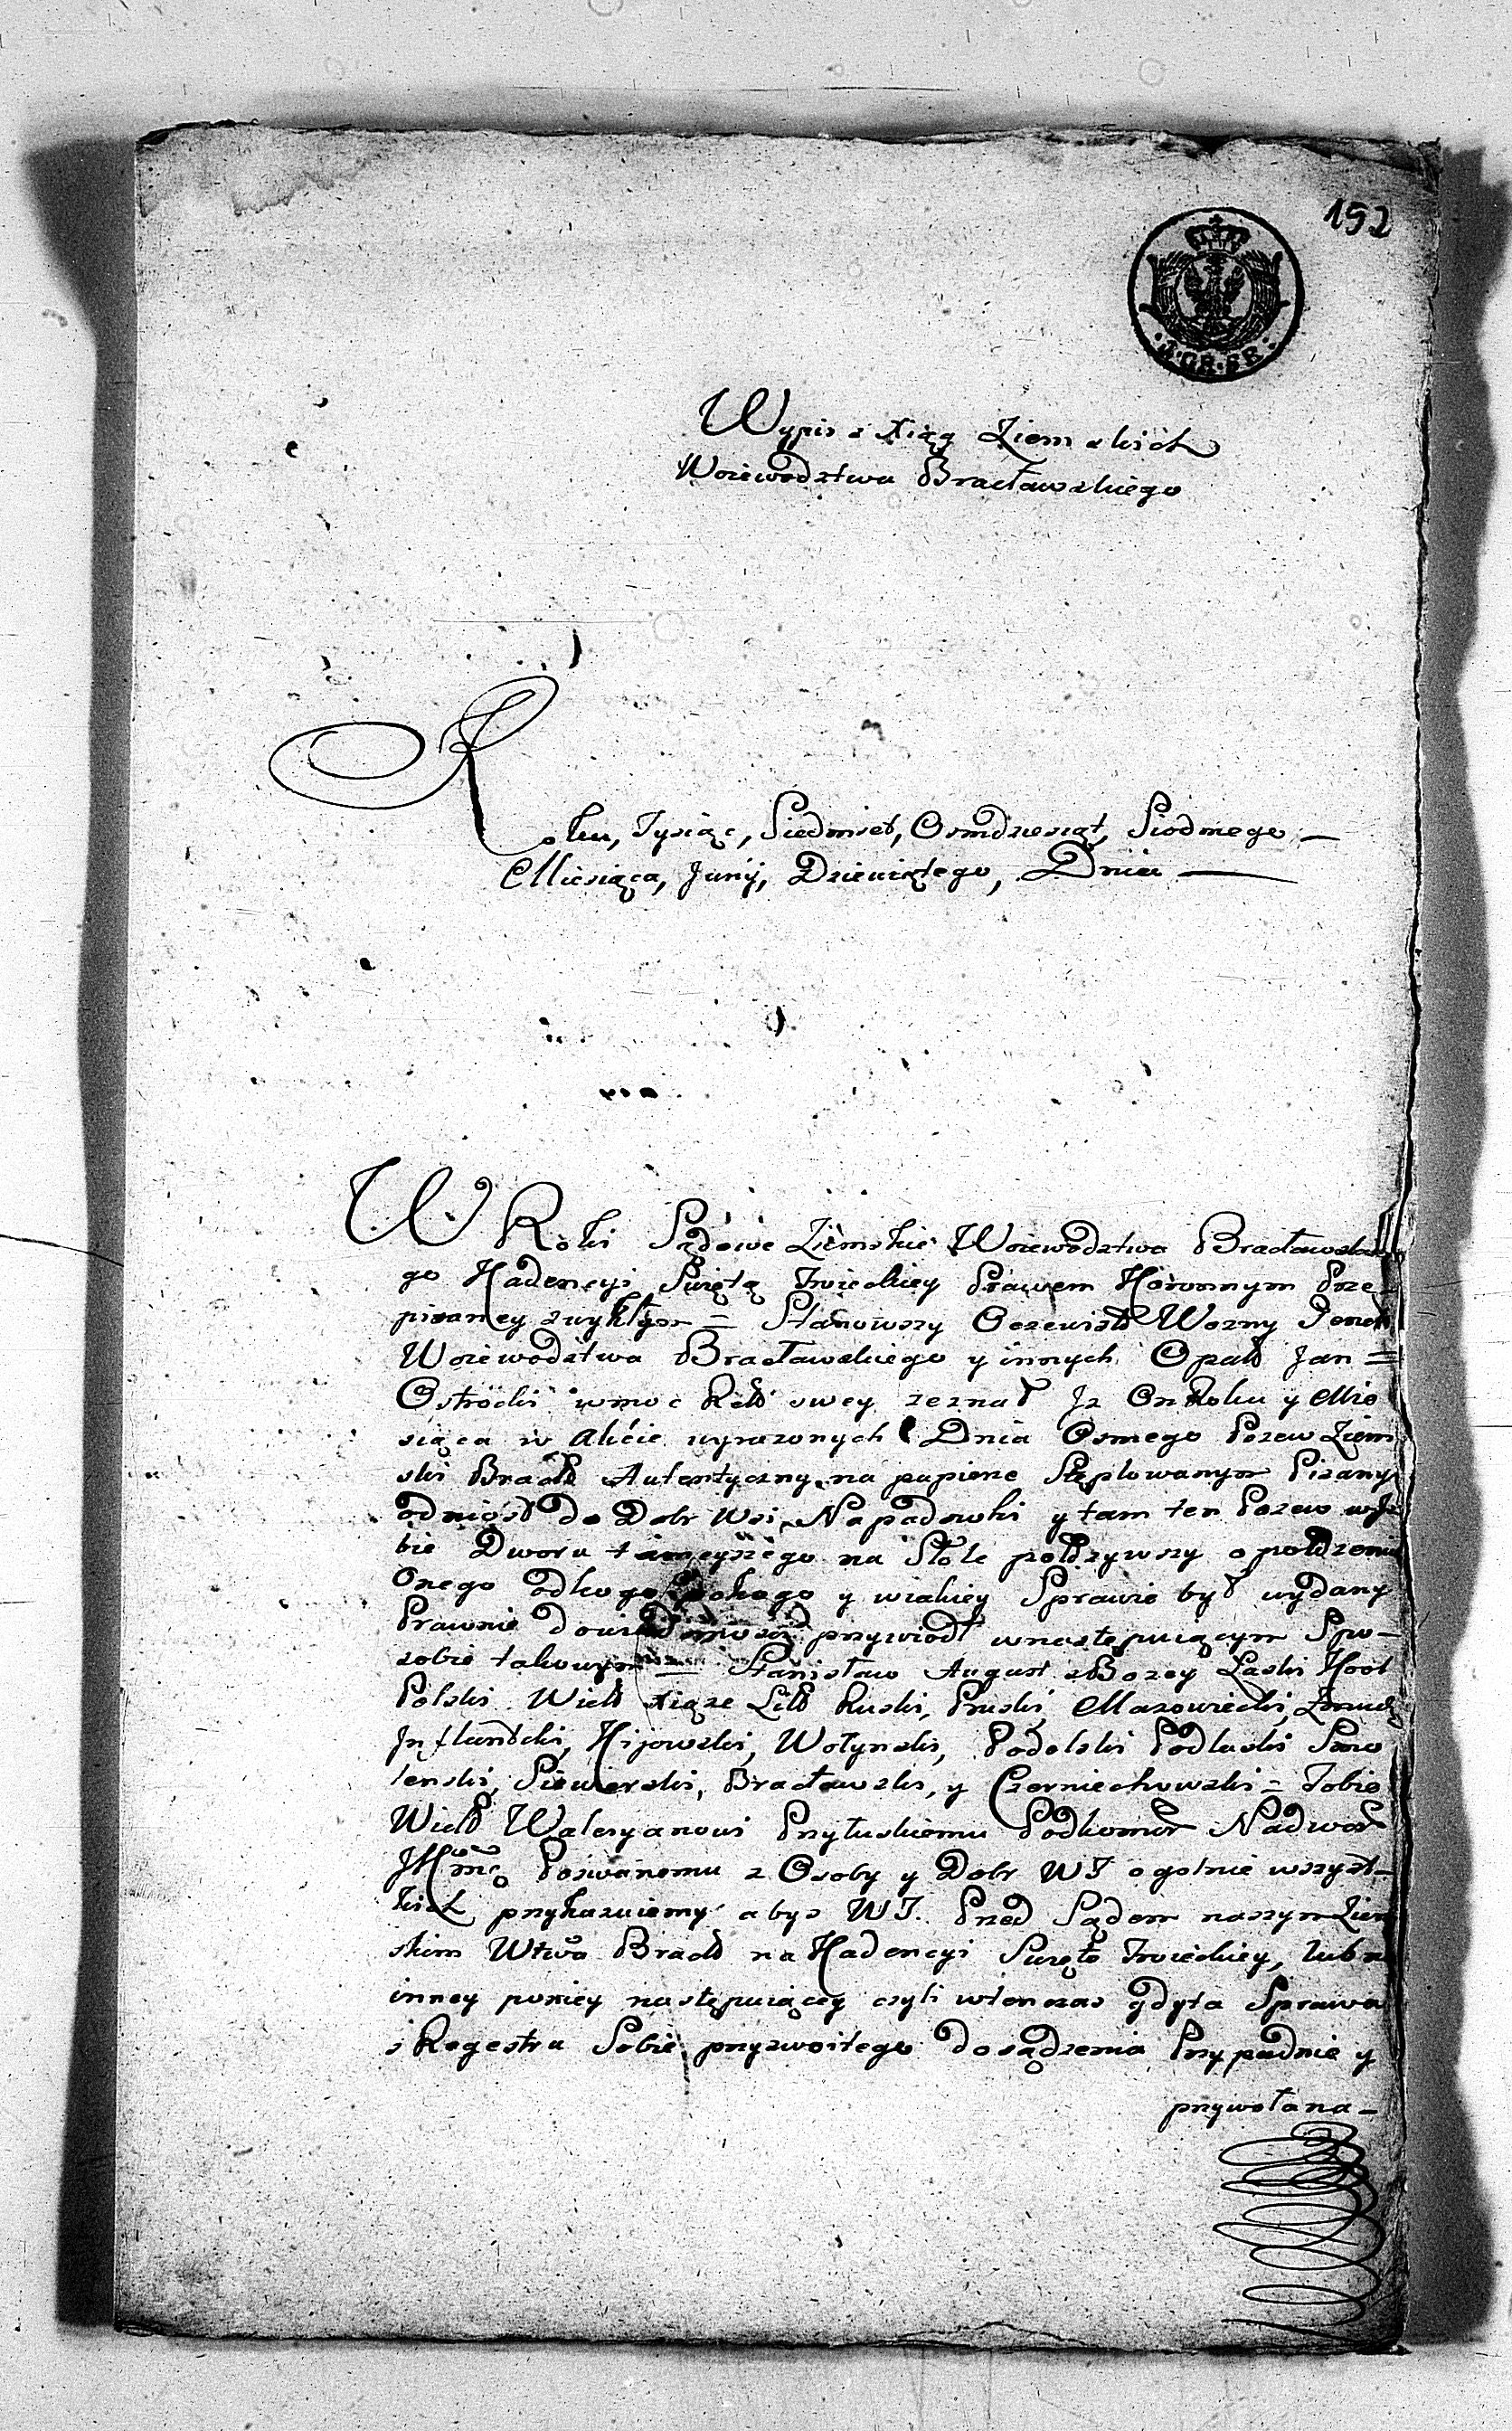 192
1·GR·SR·
Wypis z Xiąg Ziemskich
Woiewodztwa Bracławskiego
Roku, Tysiąc, Siedmset, Osmdziesiąt, Siodmego —
Miesiąca, Junÿ, Dziewiątego, Dnia —
W Roki Sądowe Ziemskie Woiewodztwa Bracławskie
go Kadencyi Swięto Troieckiey Prawem Koronnym Prze-
pisaney zwykłym = Stanowszy Oczewisto Wozny Jenał
Woiewodztwa Bracławskiego y innych Opatt Jan =
Ostrocki w moc Rell swey zeznał Iz On Roku y Mie
siąca w Akcie wyrazonych Dnia Osmego Pozew Ziem
ski Bracł Autentyczny na papierze Stęplowanym Pisany
odniosł do Dobr Wsi Napadowki y tam ten Pozew w Iz
bie Dworu tameyszego na Stole połozywszy o połozeniu
Onego od kogo po kogo y w iakiey Sprawie był wydany
Prawnie do wiadomości przywiodł w następuiącym Spo-
sobie takowym = Stanisław August z Bozey Łaski Krol
Polski Wielki Xiąze Litt Ruski, Pruski, Mazowiecki, Zmudz
Inflantski, Kijowski, Wołynski, Podolski Podlaski Smo
lenski, Siewierski, Bracławski, y Czerniechowski = Tobie
Wielb Waleryanowi Przyłuskiemu Podkomor Nadwor
JKmć Pozwanemu z Osoby y Dobr WT ogolnie wszyst-
kich przykazuiemy abys WT. Przed Sądem naszym Ziem
skim Wtwa Bracł na Kadencyi Swięto Troieckiey, lub na
inney pozniey następuiącey czyli w tenczas gdy ta Sprawa
z Regestru Sobie przyzwoitego do sądzenia Przypadnie y
przywołana —